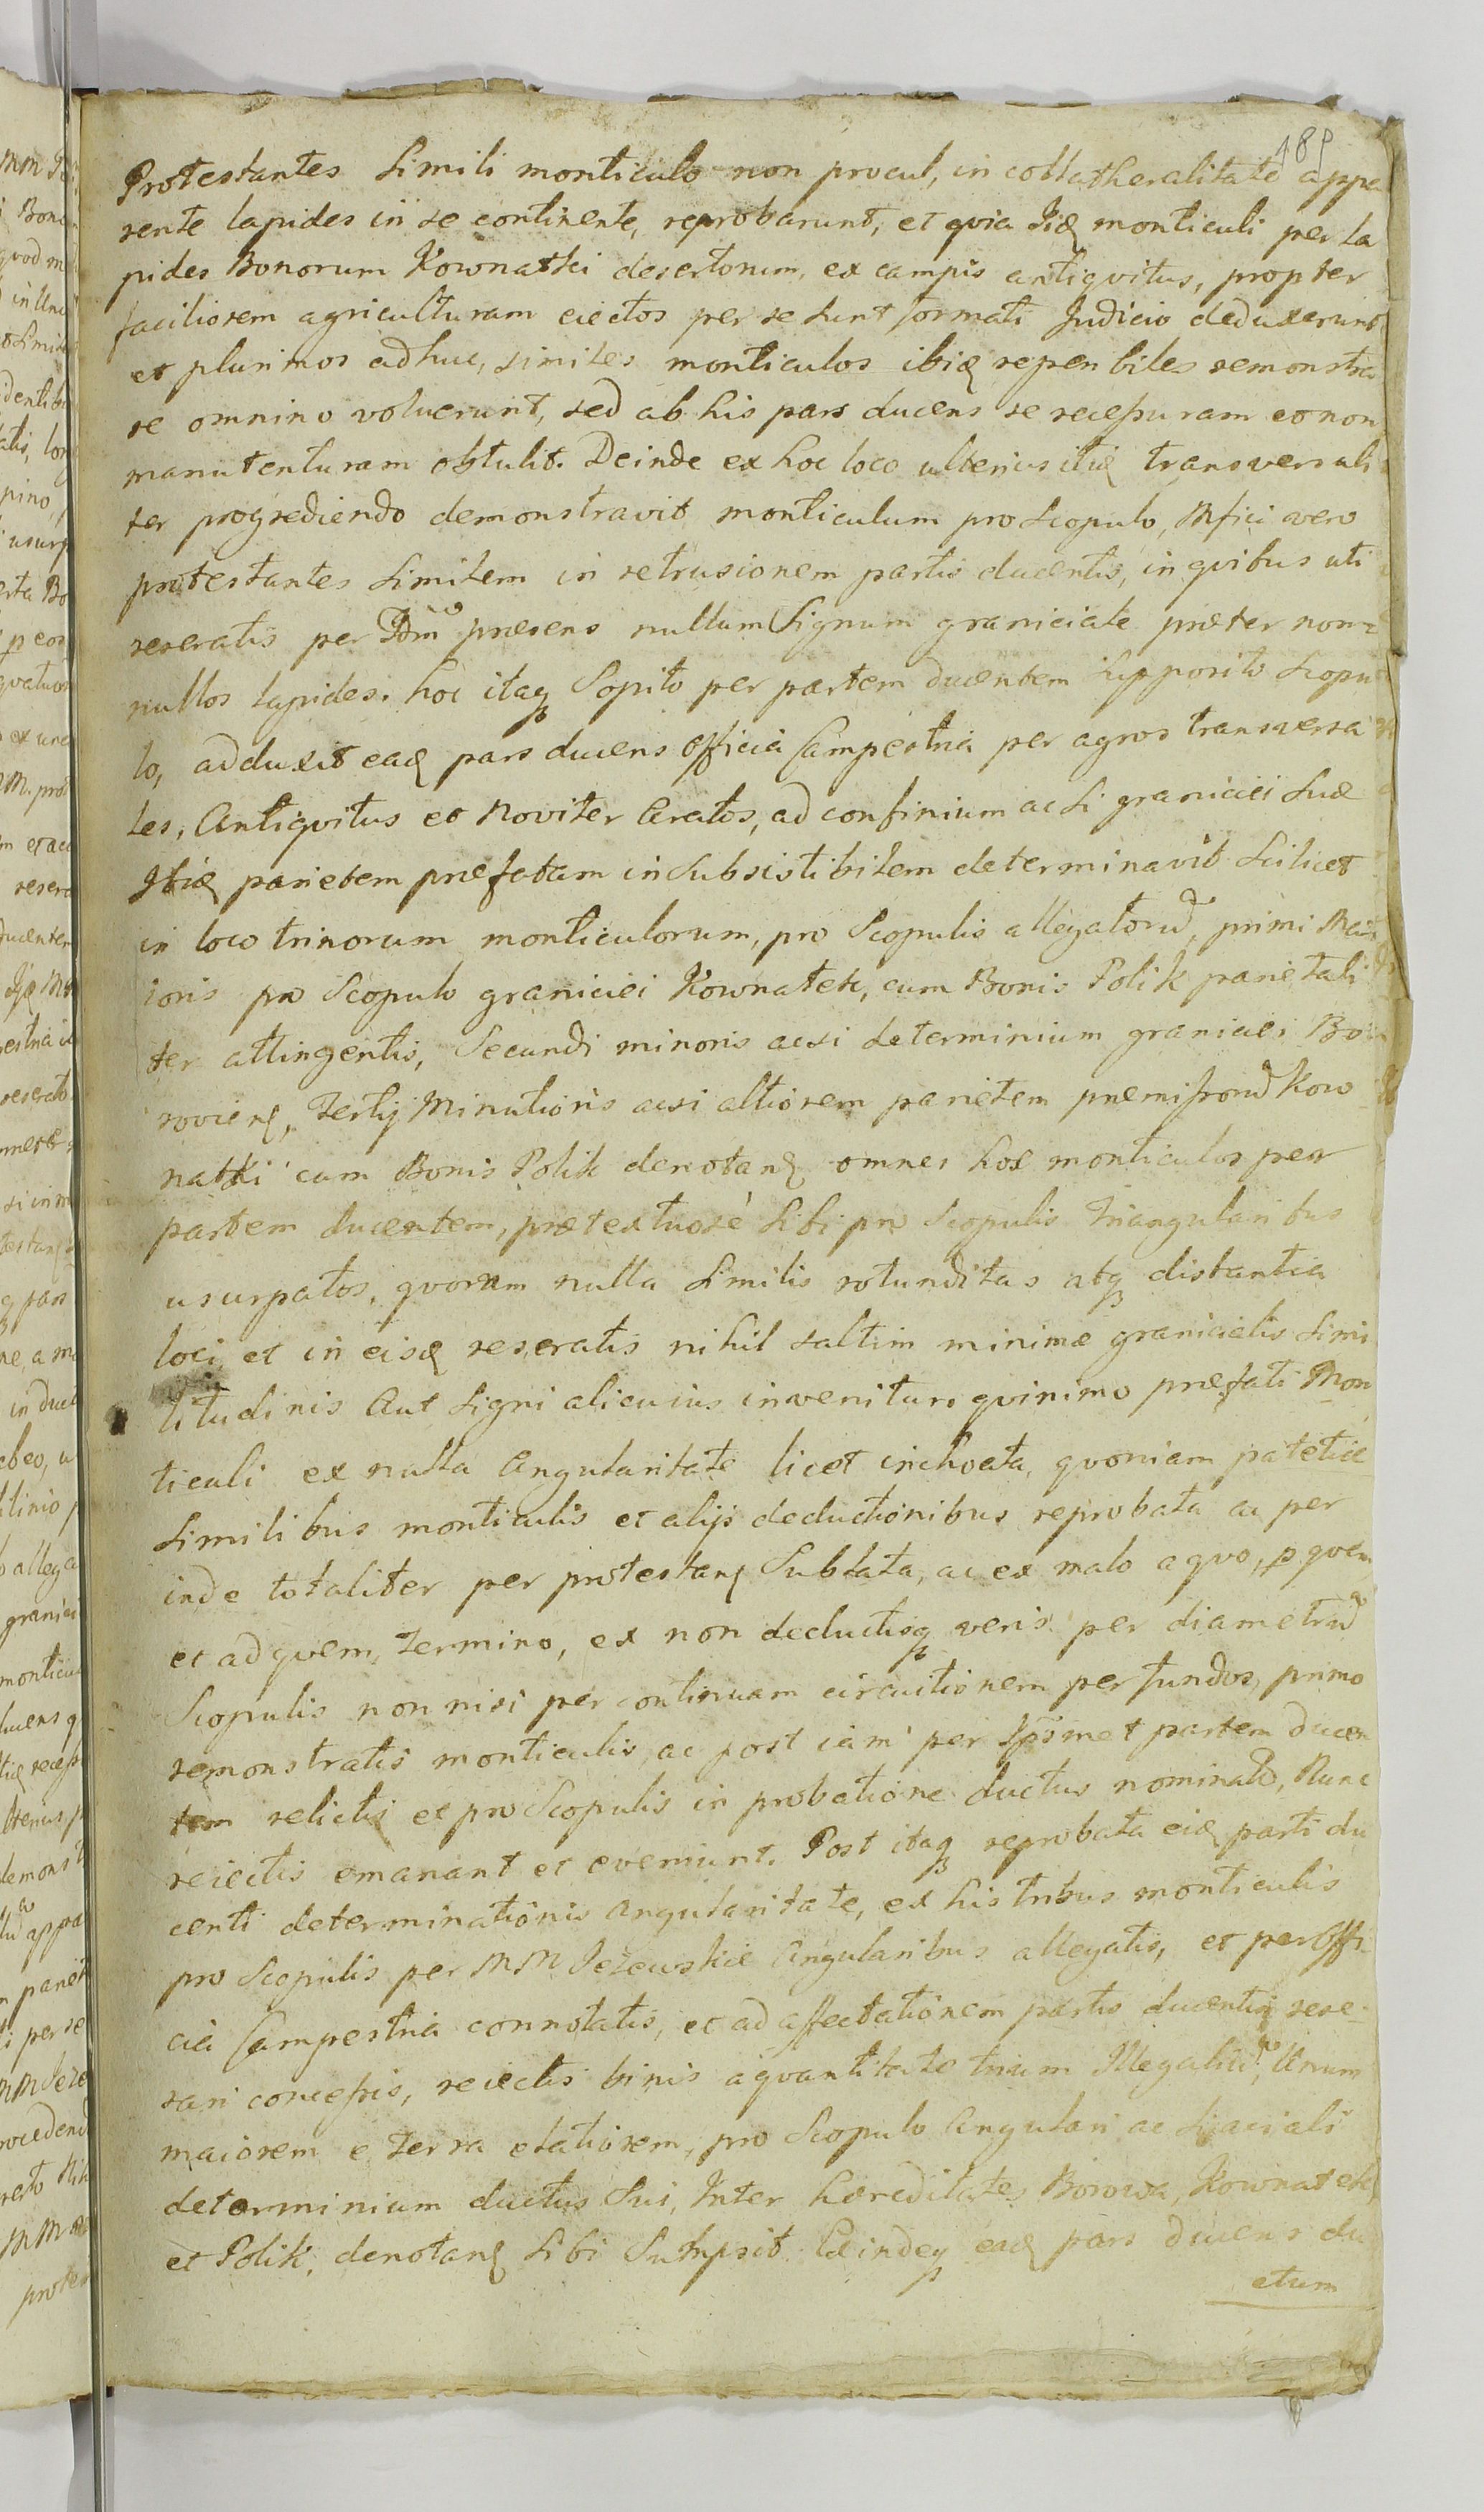 189
Protestantes simili monticulo non procul, in collatheralitate appa
rente lapides in se continente, reprobarunt, et qvia iidē monticuli per la
pides Bonorum Kownatki desertorum, ex campis antiqvitus, propter
faciliorem agriculturam eiectos per se sunt formati Judicio deduxerunt
et plurimos adhuc, similes monticulos ibidē reperibiles remonstra
re omnino voluerunt, sed ab his pars ducens se recessuram et non
manutenturam obtulit. Deinde ex hoc loco ulterius itidē transversali
ter progrediendo demonstravit monticulum pro Scopulo, Mfici vero
protestantes similem in retrusionem partis ducentis, in qvibus uti
reseratis per Judm præsens nullum Signum graniciale præter non=
nullos lapides. hoc itaq Sopito per partem ducentem supposito Scopu
lo, adduxit eadē pars ducens Officia Campestria per agros transversa
les, Antiqvitus et Noviter Aratos, ad confinium ac si graniciei suæ
Itidē parietem præfatam insubsistibilem determinavit scilicet
in loco trinorum monticulorum, pro Scopulis allegatorū, primi Ma
ioris pro Scopulo graniciei Kownatek, cum Bonis Polik parietali
ter attingentis, Secundi minoris acsi determinium graniciei Bo
rovien, Tertij Minutioris acsi altiorem parietem præmissorū Kow
natki cum Bonis Polik denotan omnes hos monticulos per
partem ducentem, prætextuosè sibi pro Scopulis Triangularibus
usurpatos, qvorum nulla similis rotunditas atq distantia
loci, et in eisdē reseratis nihil saltim minimæ granicialis simi
litudinis Aut signi alicuius invenitur, qvinimo præfati Mon
ticuli ex nulla Angularitate licet inchoata, qvoniam patetice
similibus monticulis et alijs deductionibus reprobata ac per
inde totaliter per protestan Sublata, ac ex malo a qvo, p qvem
et ad qvem, Termino, ex non deductisq veris per diametrū
Scopulis non nisi per continuam circuitionem per fundos, primo
remonstratis monticulis, ac post iam per Ipsmet partem ducen
tem relictis et pro Scopulis in probatione ductus nominatū, Nunc
reiectis emanant et eveniunt. Post itaq reprobata eidē parti du
centi determinationis Angularitate, ex his tribus monticulis
pro Scopulis per MM Jezewskie Angularibus allegatis, et per Offi
cia Campestria connotatis, et ad affectationem partis ducentis rese=
rari concessis, reiectis binis a qvantitate trium Illegaliū, Unum
maiorem e Terra elatiorem, pro Scopulo Angulari ac
determinium ductus sui, Inter hæreditates Borowa, Kownatek
et Polik, denotan sibi Sumpsit. Exindeq eadē pars ducens du
ctum